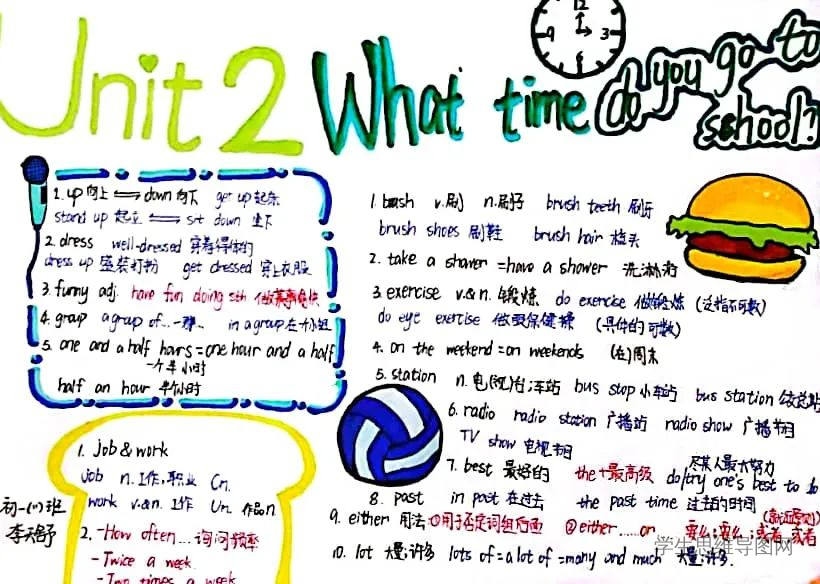 Unit 2 What time do you go to school?
12
9 3
6
1. up 向上 ⟺ down 向下 get up 起床
stand up 起立 ⟺ sit down 坐下
2. dress well-dressed 穿着得体的
dress up 盛装打扮 get dressed 穿上衣服
3. funny adj. have fun doing sth 做某事愉快
4. group a group of... 一群... in a group 在小组
5. one and a half hours = one hour and a half
一个半小时
half an hour 半小时
1. job & work
job n. 工作,职业 Cn.
work v.&n. 工作 Un. 作品n
2. -How often... 询问频率
-Twice a week.
-Two times a week
初一(1)班
1. brush v.刷 n.刷子 brush teeth 刷牙
brush shoes 刷鞋 brush hair 梳头
2. take a shower = have a shower 洗淋浴
3. exercise v.&n. 锻炼 do exercise 做锻炼 (泛指不可数)
do eye exercise 做眼保健操 (具体的可数)
4. on the weekend = on weekends (在)周末
5. station n. 电(视)台;车站 bus stop 小车站 bus station
6. radio radio station 广播站 radio show 广播节目
TV show 电视节目
7. best 最好的 the+最高级 do/try one's best to do
尽某人最大努力
8. past in past 在过去 the past time 过去的时间
9. either 用法:①用于否定词组后面 ②either.....or 要么;要么;或者..或者
10. lot 大量;许多 lots of = a lot of = many and much 大量;许多.
学生思维导图网